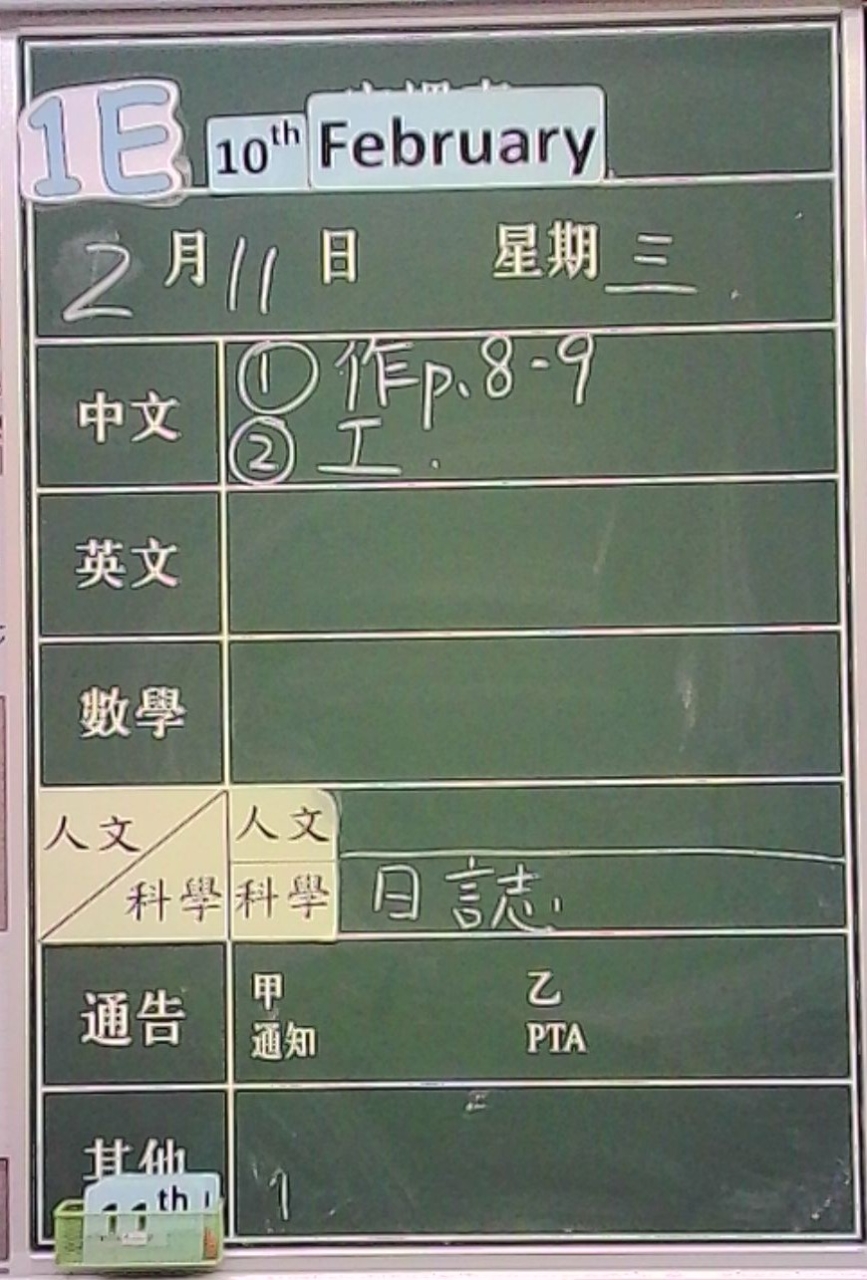 1E
10th February
2月11日 星期三
中文
① 作p.8-9
② 工.
英文
數學
人文
科學
人文
科學 日誌
通告
甲 乙
通知 PTA
其他
1
11th